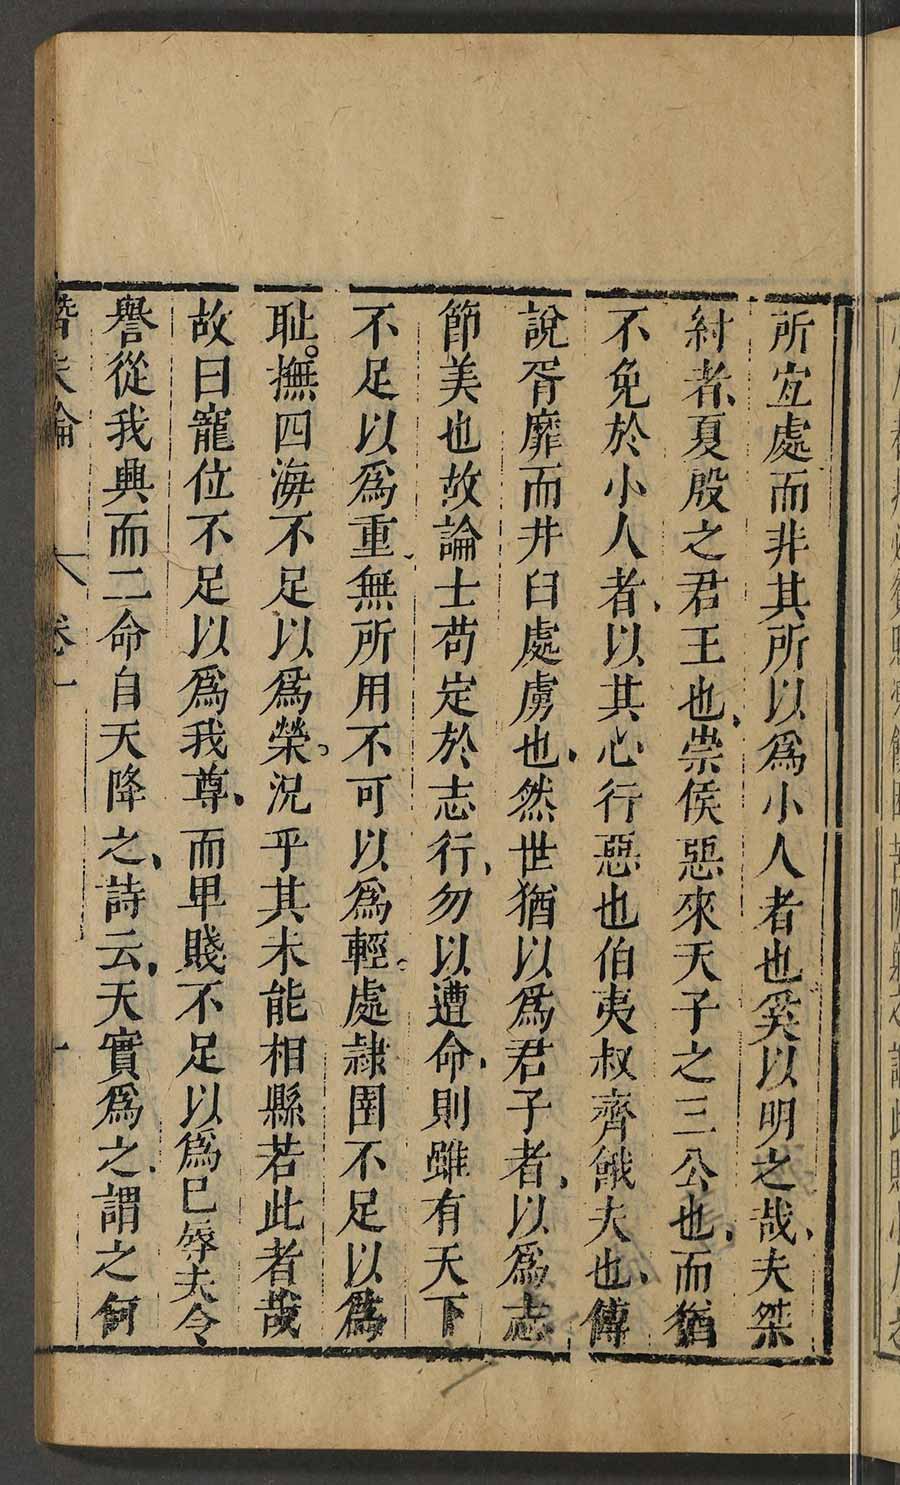 所宜處而非其所以爲小人者也奚以明之哉、夫桀
紂者、夏殷之君王也、崇侯惡來天子之三公也、而猶
不免於小人者、以其心行惡也伯夷叔齊餓夫也、傅
說胥靡而井臼處虜也、然世猶以爲君子者、以爲志
節美也故論士苟定於志行、勿以遭命、則雖有天下
不足以爲重無所用不可以爲輕。處隷圉不足以爲
耻。撫四海不足以爲榮。況乎其未能相縣若此者哉
故曰寵位不足以爲我尊、而卑賤不足以爲已辱夫令
譽從我興而二命自天降之、詩云、天實爲之、謂之何
潛夫論 卷一